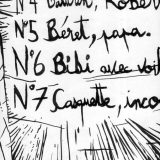 N°4
N°5 Béret, papa.
N°6 Bibi avec voil
N°7 Casquette, inco